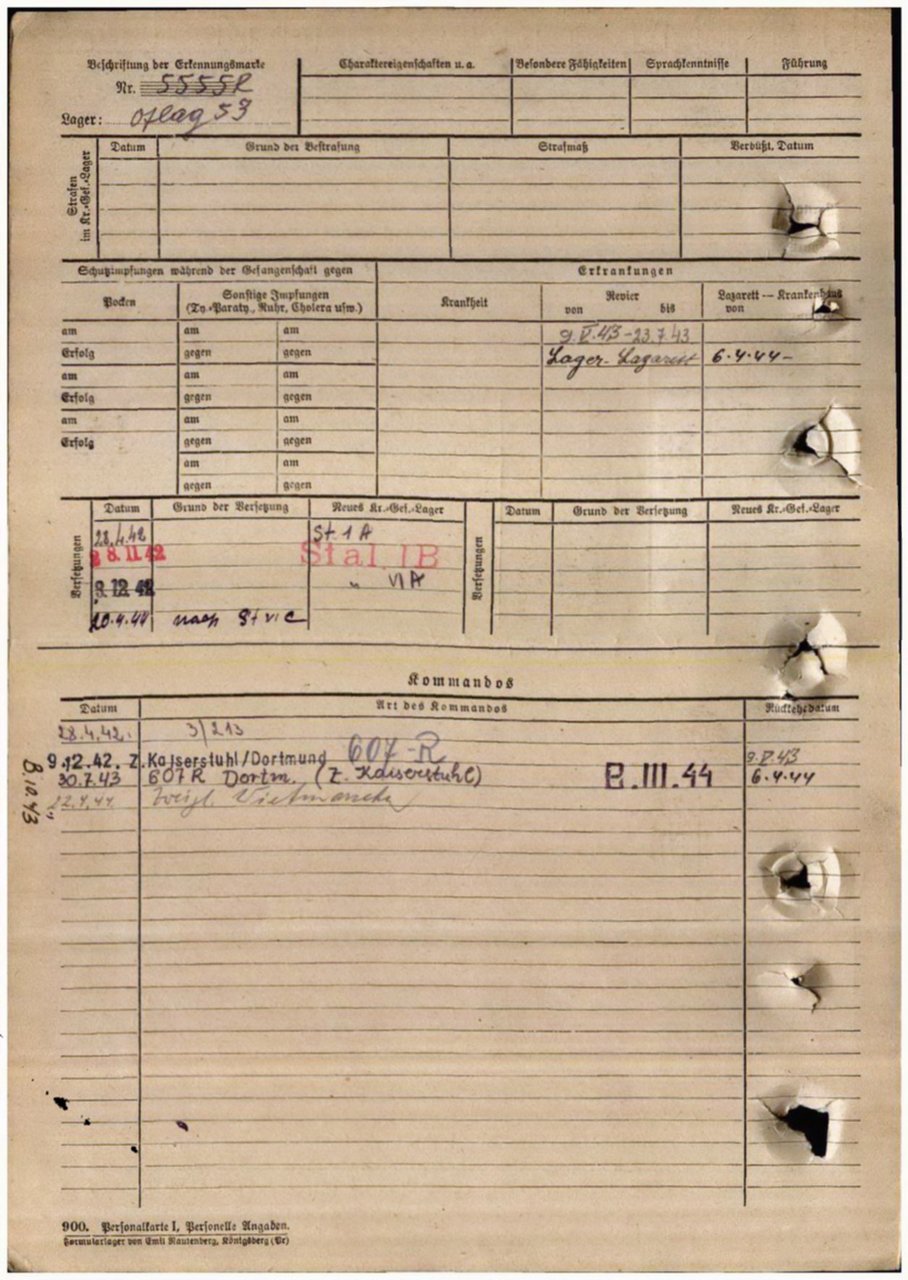 Beschriftung der Erkennungsmarke
Nr. 5555R
Lager: Oflag 53
Charaktereigenschaften u. a.
Besondere Fähigkeiten
Sprachkenntnisse
Führung
Strafen im Kr.-Gef.-Lager
Datum
Grund der Bestrafung
Strafmaß
Verbüßt, Datum
Schutzimpfungen während der Gefangenschaft gegen
Erkrankungen
Pocken
Sonstige Impfungen
(Ty.-Paraty., Ruhr, Cholera usw.)
Krankheit
Revier
von bis
Lazarett — Krankenhaus
von
am am am
9.V.43-23.7.43
Erfolg gegen gegen
Lager-Lazarett 6.4.44-
am am am
Erfolg gegen gegen
am am am
Erfolg gegen gegen
am am
gegen gegen
Versetzungen
Datum Grund der Versetzung Neues Kr.-Gef.-Lager
28.4.42 St. 1 A
28.11.42 Stal. IB
9.12.42 " VI A
20.4.44 nach St VI C
Versetzungen
Datum Grund der Versetzung Neues Kr.-Gef.-Lager
Kommandos
Datum Art des Kommandos Rückkehrdatum
28.4.42. 3/213
9.12.42. Z. Kaiserstuhl/Dortmund 607-R 9.V.43
30.7.43 607R Dortm. (Z. Kaiserstuhl) E.III.44 6.4.44
22.4.44
8.10.43
900. Personalkarte I, Personelle Angaben.
Formularlager von Emil Rautenberg, Königsberg (Pr)